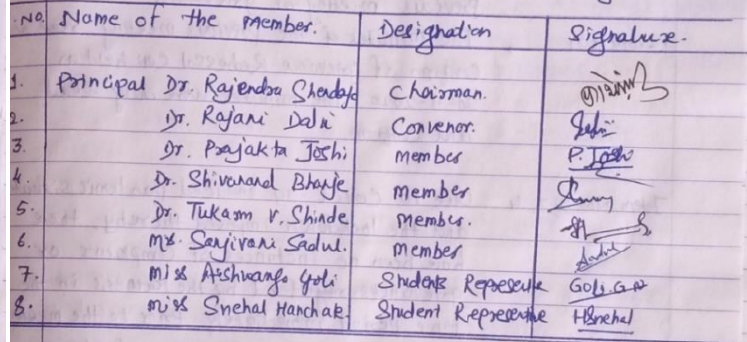 .NO. Name of the Member. Designation Signature.
1. Principal Dr. Rajendra Shendage Chairman.
2. Dr. Rajani Dalvi Convenor.
3. Dr. Prajakta Joshi member P. Joshi
4. Dr. Shivanand Bhanje member
5. Dr. Tukaram V. Shinde member.
6. Mr. Sanjivani Sadul. member
7. Miss Aishwarya Goli Students Goli.G.A
8. Miss Snehal Hanchate Student HSnehal